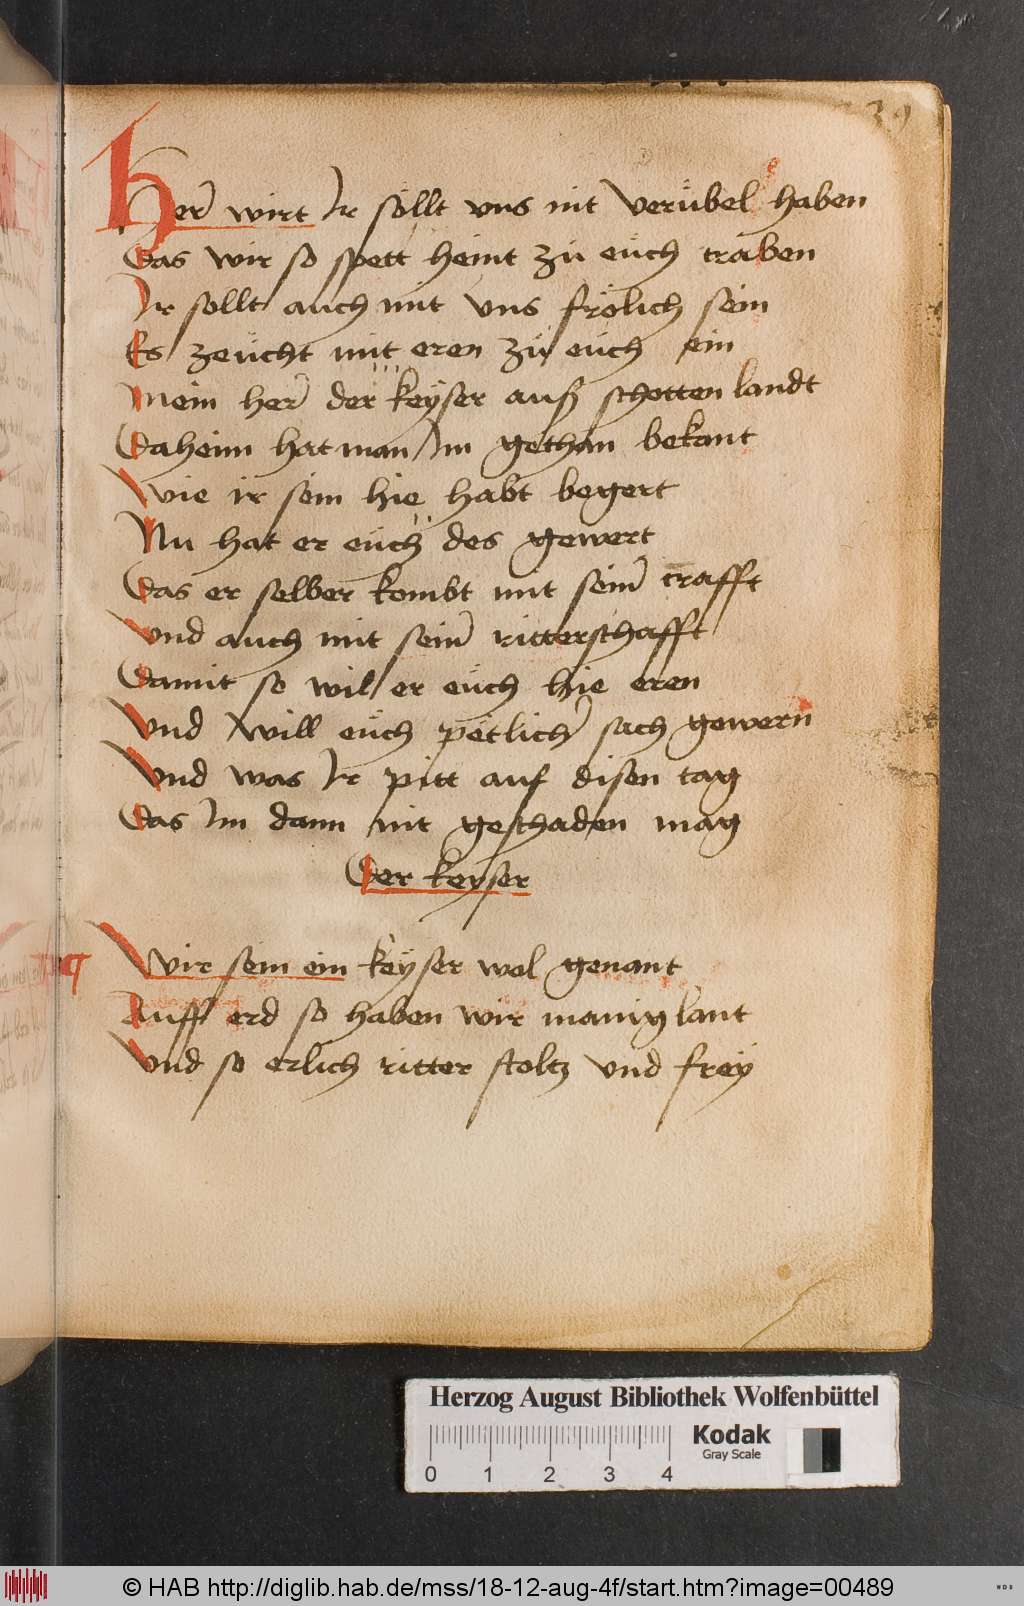 Her wirt Ir söllt uns nit verübel haben
Das wir so spett heint zu euch traben
Ir sollt auch mit uns frölich sein
Es zeucht mit eren zu euch ein
Mein her der keyser auß schotten landt
Daheim hat man Im gethan bekant
Wie ir sein hie habt begert
Nu hat er euch des gewert
Das er selber kombt mit seiner crafft
Und auch mit seiner ritterschafft
Damit so wil er euch hie eren
Und will euch petlicher sach gewern
Und was Ir pitt auf disen tag
Das Im dann nit geschaden mag
Der keyser
Wir sein ein keyser wol genant
Auff erd so haben wir manig lant
Und so erlich ritter stoltz und frey
Herzog August Bibliothek Wolfenbüttel
Kodak
Gray Scale
0 1 2 3 4
© HAB http://diglib.hab.de/mss/18-12-aug-4f/start.htm?image=00489